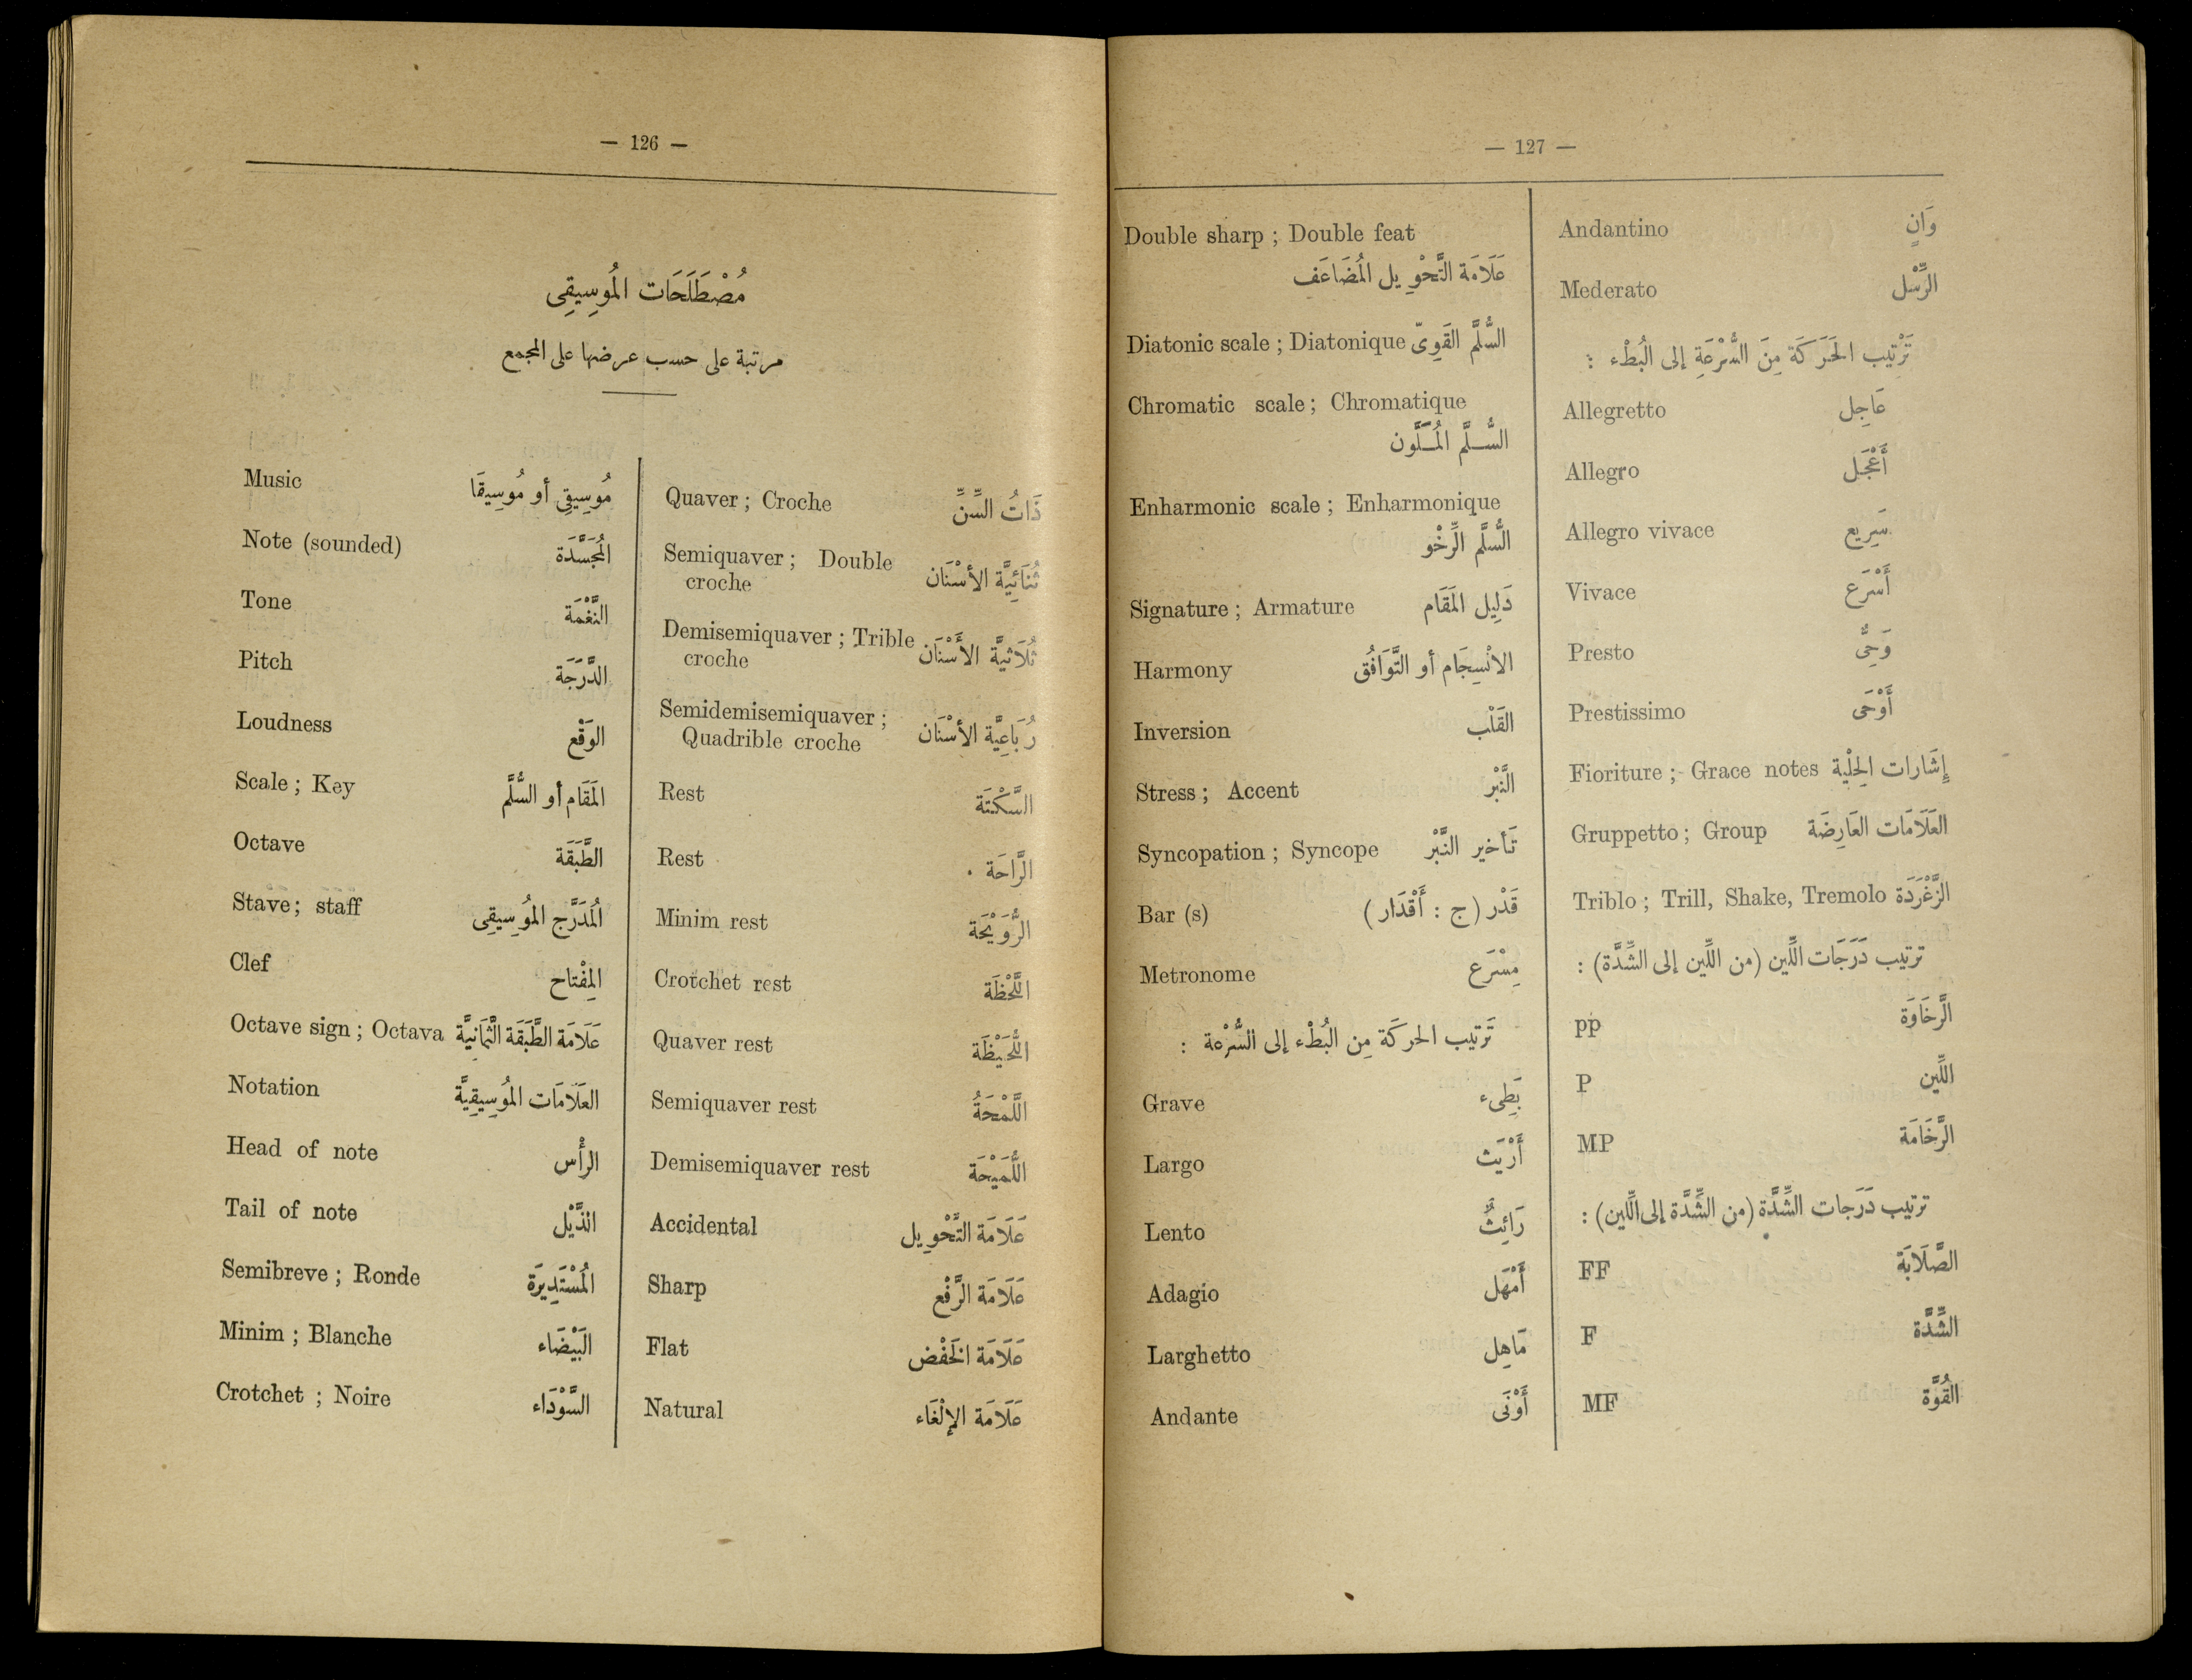 — 126 —
مُصْطَلَحَات المُوسِيقِى
مرتبة على حسب عرضها على المجمع
Music مُوسِيقِى أو مُوسِيقَا
Note (sounded) المُجَسَّدَة
Tone النَّغْمَة
Pitch الدَّرَجَة
Loudness الوَقْع
Scale ; Key المَقَام أو السُّلَّم
Octave الطَّبَقَة
Stave ; staff المُدَرَّج المُوسِيقِى
Clef المِفْتاح
Octave sign ; Octava عَلَامَة الطَّبَقَة الثَّمَانِيَّة
Notation العَلَامَات المُوسِيقِيَّة
Head of note الرأْس
Tail of note الذَّيْل
Semibreve ; Ronde المُسْتَدِيرَة
Minim ; Blanche البَيْضَاء
Crotchet ; Noire السَّوْدَاء
Quaver ; Croche ذَاتُ السِّنِّ
Semiquaver ; Double
croche ثُنَائِيَّة الأسْنَان
Demisemiquaver ; Trible
croche ثُلَاثيَّة الأَسْنَان
Semidemisemiquaver ;
Quadrible croche رُبَاعِيَّة الأسْنَان
Rest السَّكْتَة
Rest الرَّاحَة .
Minim rest الرُّوَيْحَة
Crotchet rest اللَّحْظَة
Quaver rest اللُّحَيْظَة
Semiquaver rest اللَّمْحَةُ
Demisemiquaver rest اللُّمَيْحَة
Accidental عَلَامَة التَّحْوِيل
Sharp عَلَامَة الرَّفْع
Flat عَلَامَة الخَفْض
Natural عَلَامَة الإلْغَاء
— 127 —
Double sharp ; Double feat
عَلَامَة التَّحْوِيل المُضَاعَف
Diatonic scale ; Diatonique السُّلَّم القَوِىّ
Chromatic scale ; Chromatique
السُّلَّم المُلَوَّن
Enharmonic scale ; Enharmonique
السُّلَّم الرِّخْو
Signature ; Armature دَلِيل المَقَام
Harmony الانْسِجَام أو التَّوَافُق
Inversion القَلْب
Stress ; Accent النَّبْر
Syncopation ; Syncope تَأخير النَّبْر
Bar (s) قَدْر (ج : أَقْدَار)
Metronome مِسْرَع
تَرتيب الحركَة مِن البُطْء إلى السُّرْعة :
Grave بَطِىء
Largo أَرْيَث
Lento رَائِثٌ
Adagio أَمْهَل
Larghetto مَاهِل
Andante أَوْنَى
Andantino وَانٍ
Mederato الرِّسْل
تَرْتِيب الحَرَكَة مِنَ السُّرْعَةِ إلى البُطْء :
Allegretto عَاجِل
Allegro أَعْجَل
Allegro vivace سَرِيع
Vivace أَسْرَع
Presto وَحِىٌّ
Prestissimo أَوْحَى
Fioriture ; Grace notes إشَارات الحِلْية
Gruppetto ; Group العَلَامَات العَارِضَة
Triblo ; Trill, Shake, Tremolo الزَّغْرَدَة
ترتيب دَرَجَات اللِّين (من اللِّين إلى الشِّدَّة) :
pp الرَّخَاوَة
P اللِّين
MP الرَّخَامَة
ترتيب دَرَجات الشِّدَّة (من الشِّدَّة إلى اللِّين) :
FF الصَّلَابَة
F الشِّدَّة
MF القُوَّة